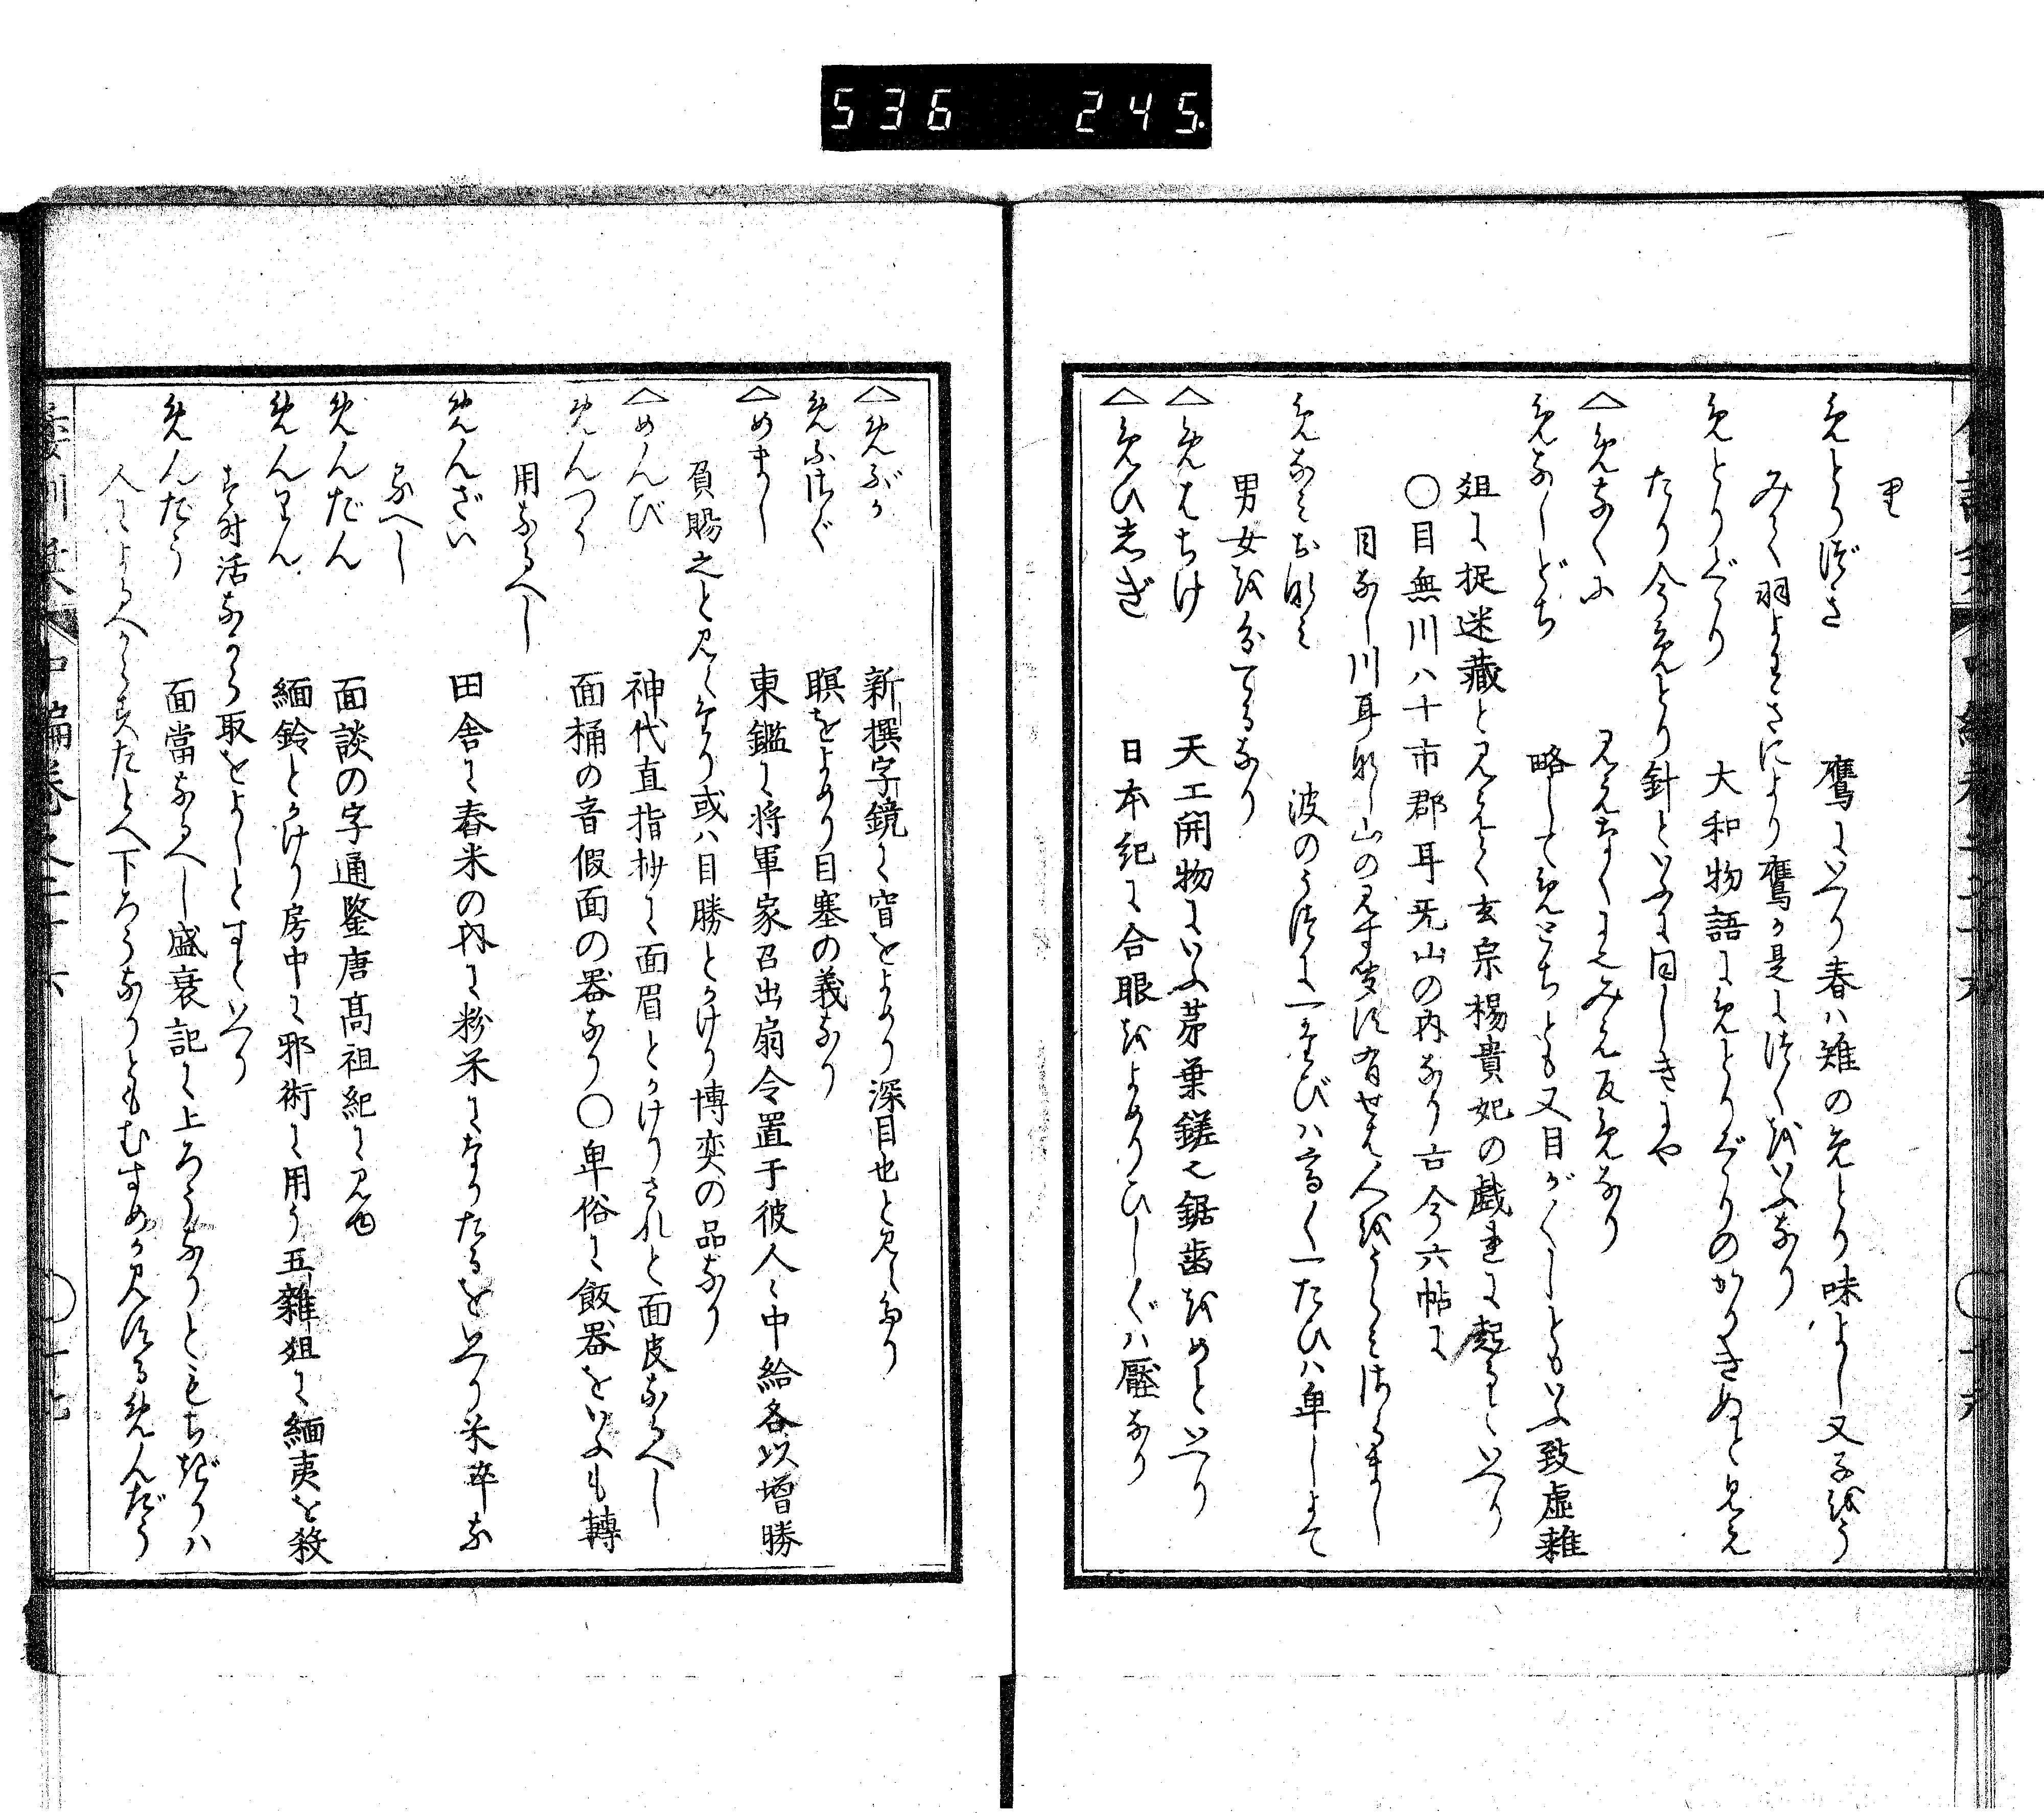 536 245
り
めとりづさ 鷹にいへり春ハ雉のめとり味よし又子をう
みて羽よわさにより鷹か是につくをいふなり
めとりぐり 大和物語にめとりぐりのかりきぬと見え
たり今めとり針といふに同しきにや
△めなくふ
めなしどち 略してめこちとも又目がくしともいふ致虚雜
爼に捉迷藏と見えて玄宗楊貴妃の戯れに起るといへり
〇目無川ハ十市郡耳无山の内なり古今六帖に
目なし川耳なし山の見す聞す有せは人をうらみさらまし
めなみおなみ 波のうつに一たびハ高く一たひハ卑しよて
男女を分てるなり
△めはちけ 天工開物にいふ茅葉鎈も鋸歯をめといへり
△めひしぎ 日本紀に合眼をよめりひしぐハ壓なり
△めぶか 新撰字鏡に窅をよめり深目也と見えたり
めふさぐ 瞑をよめり目塞の義なり
△めまし 東鑑に将軍家召出扇令置于彼人々中給各以増勝
負賜之と見えたり或ハ目勝とかけり博奕の品なり
△めんび 神代直指抄に面眉とかけりされと面皮なるへし
めんつう 面桶の音假面の器なり〇卑俗に飯器をいふも轉
用なるへし
めんざい 田舎に舂米の内に粉米になりたるをいへり米卒な
るへし
めんだん 面談の字通鑒唐髙祖紀に見ゆ
めんりん 緬鈴とかけり房中に邪術に用う五雜爼に緬夷を殺
す時活なから取をよしとすといへり
めんたう 面當なるへし盛衰記に上ろうなりともちぎりハ
人によるへからすたとへ下ろうなりともむすめか見するめんだう
倭訓栞 中編巻之二十六 〇十七